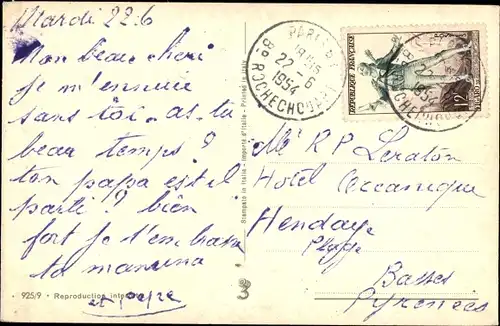 Mardi 22.6
Mon beau chéri
je m'ennuie
sans toi. as-tu
beau temps ?
ton papa est il
parti ? bien
fort je t'embrasse
ta maman
et
925/9 - Reproduction
Stampato in Italie - Importé d'Italie - Printed in Italy
PARIS
22 - 6
1954
Bd ROCHECHOUART
REPUBLIQUE FRANÇAISE
12F
R P
Hotel Océanique
Hendaye
Plage
Basses
Pyrénées